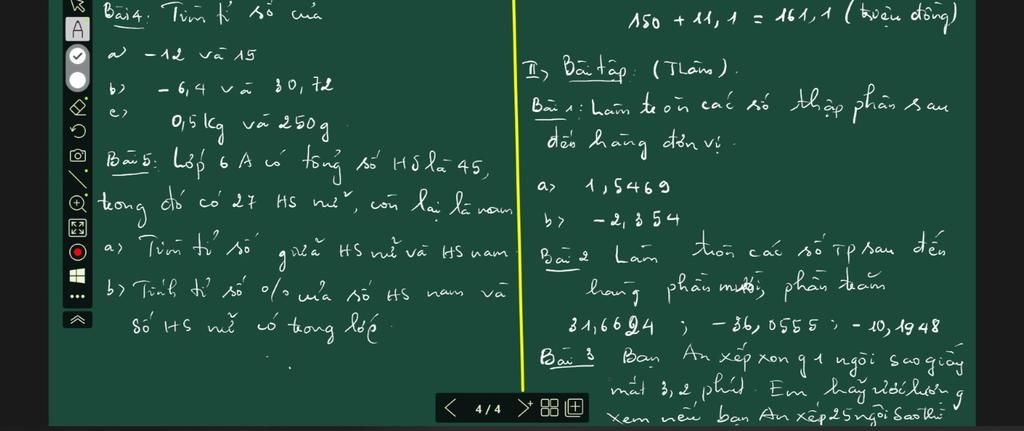 Bài 4: Tìm tỉ số của
a) -12 và 15
b) -6,4 và 30,72
c) 0,5 kg và 250g
Bài 5: Lớp 6A có tổng số HS là 45,
trong đó có 27 HS nữ, còn lại là nam
a) Tìm tỉ số giữa HS nữ và HS nam
b) Tính tỉ số % của số HS nam và
số HS nữ có trong lớp.
150 + 11,1 = 161,1 (triệu đồng)
II) Bài tập: (Thêm).
Bài 1: Làm tròn các số thập phân sau
đến hàng đơn vị.
a) 1,5469
b) -2,354
Bài 2 Làm tròn các số TP sau đến
hàng phần mười, phần trăm
31,6624 ; -36,0555 ; -10,1948
Bài 3 Bạn An xếp xong 1 ngôi sao giấy
mất 3,2 phút. Em hãy ước lượng
xem nếu bạn An xếp 25 ngôi sao thì
4/4